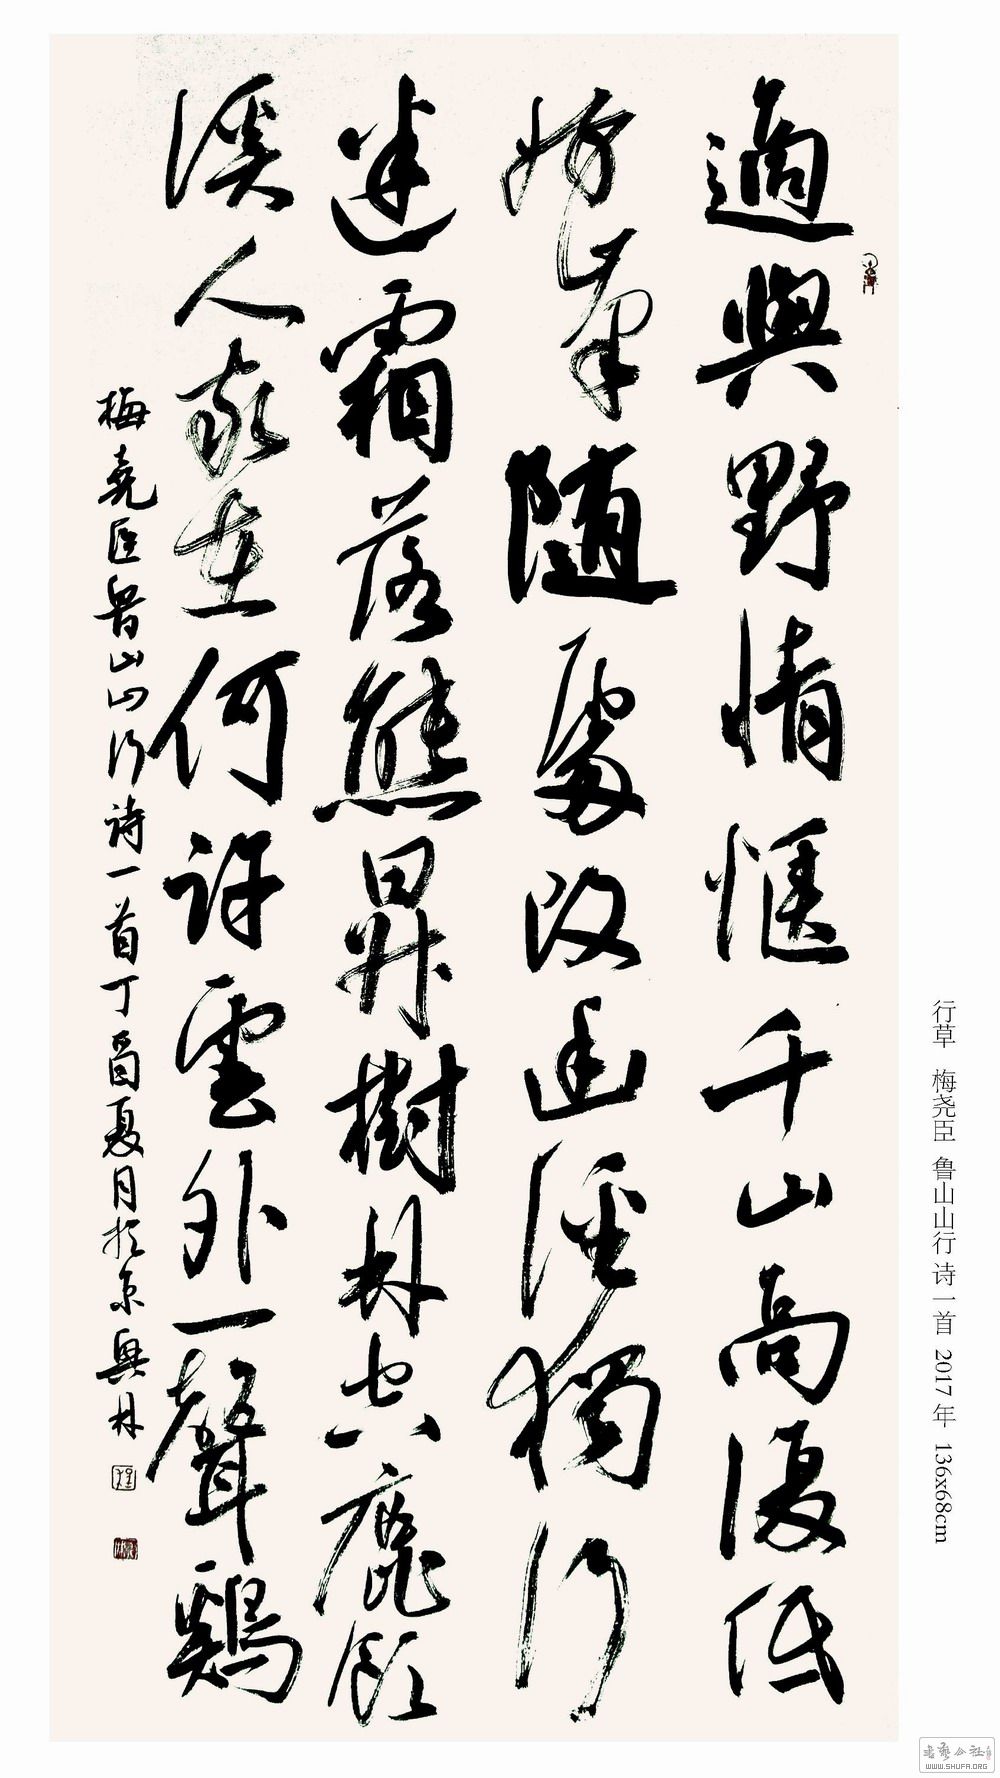 行草 梅尧臣 鲁山山行 诗一首 2017年 136x68cm
適與野情愜千山高復低
好峯随處改幽徑獨行
迷霜落熊昇樹林空鹿飲
溪人家在何許雲外一聲鷄
梅堯臣魯山山行诗一首丁酉夏月於京興林
书艺公社
WWW.SHUFA.ORG